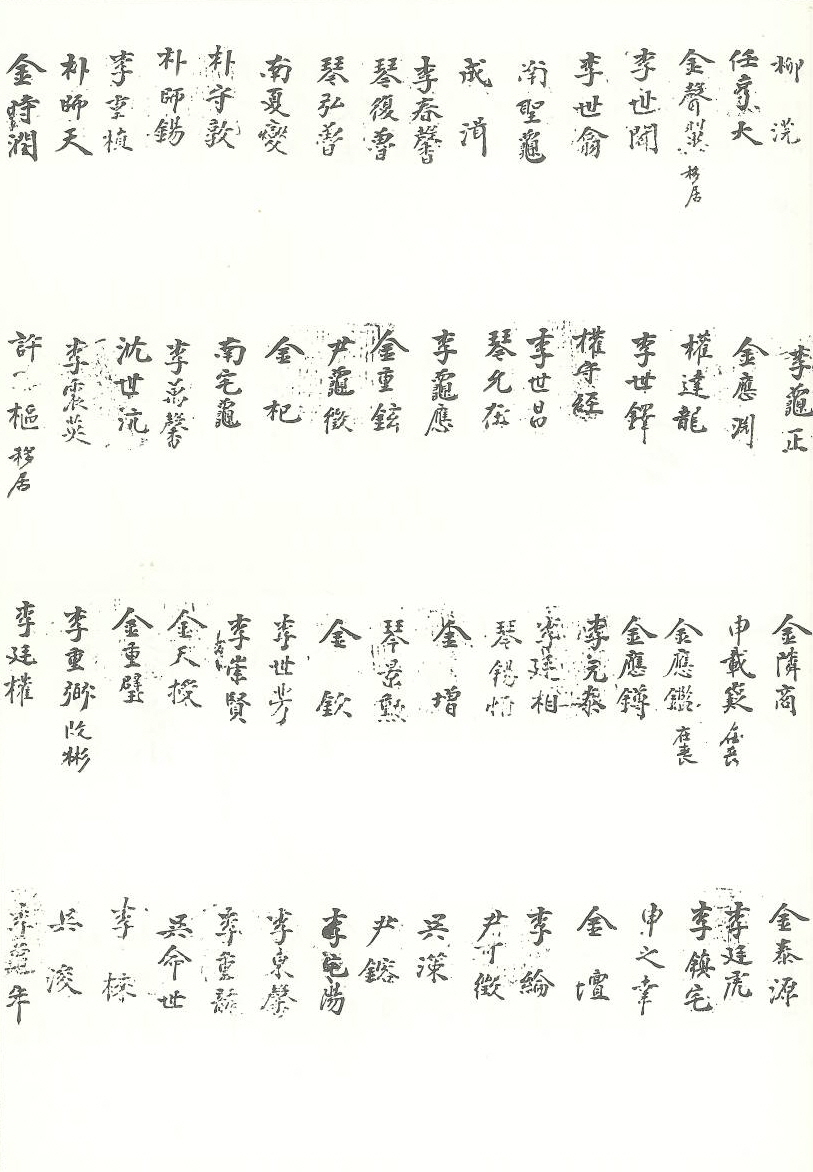 柳滉
任大
金聲 移居
李世聞
李世翕
南聖龜
成洅
李春馨
琴復曹
琴弘普
南夏燮
朴守敦
朴師錫
李重楨
朴師天
金時潤
李龜正
金應淵
權達龍
李世鐸
權守經
李世昌
琴允
李龜應
金重鉉
尹龜徵
金杞
南宅龜
李萬馨
沈世沆
李震英
許樞 移居
金隣商
申載 在喪
金應鑑 在喪
金應鐏
李元泰
李廷相
琴錫
金增
琴景勳
金欽
李世芳
李崇賢
金天授
金重璧
李重 改彬
李廷權
金泰源
李廷虎
李鎭宅
申之幸
金壇
李綸
尹可徵
吳潗
尹鎔
李龜陽
李東馨
李重
吳命世
李
吳浚
李龜年